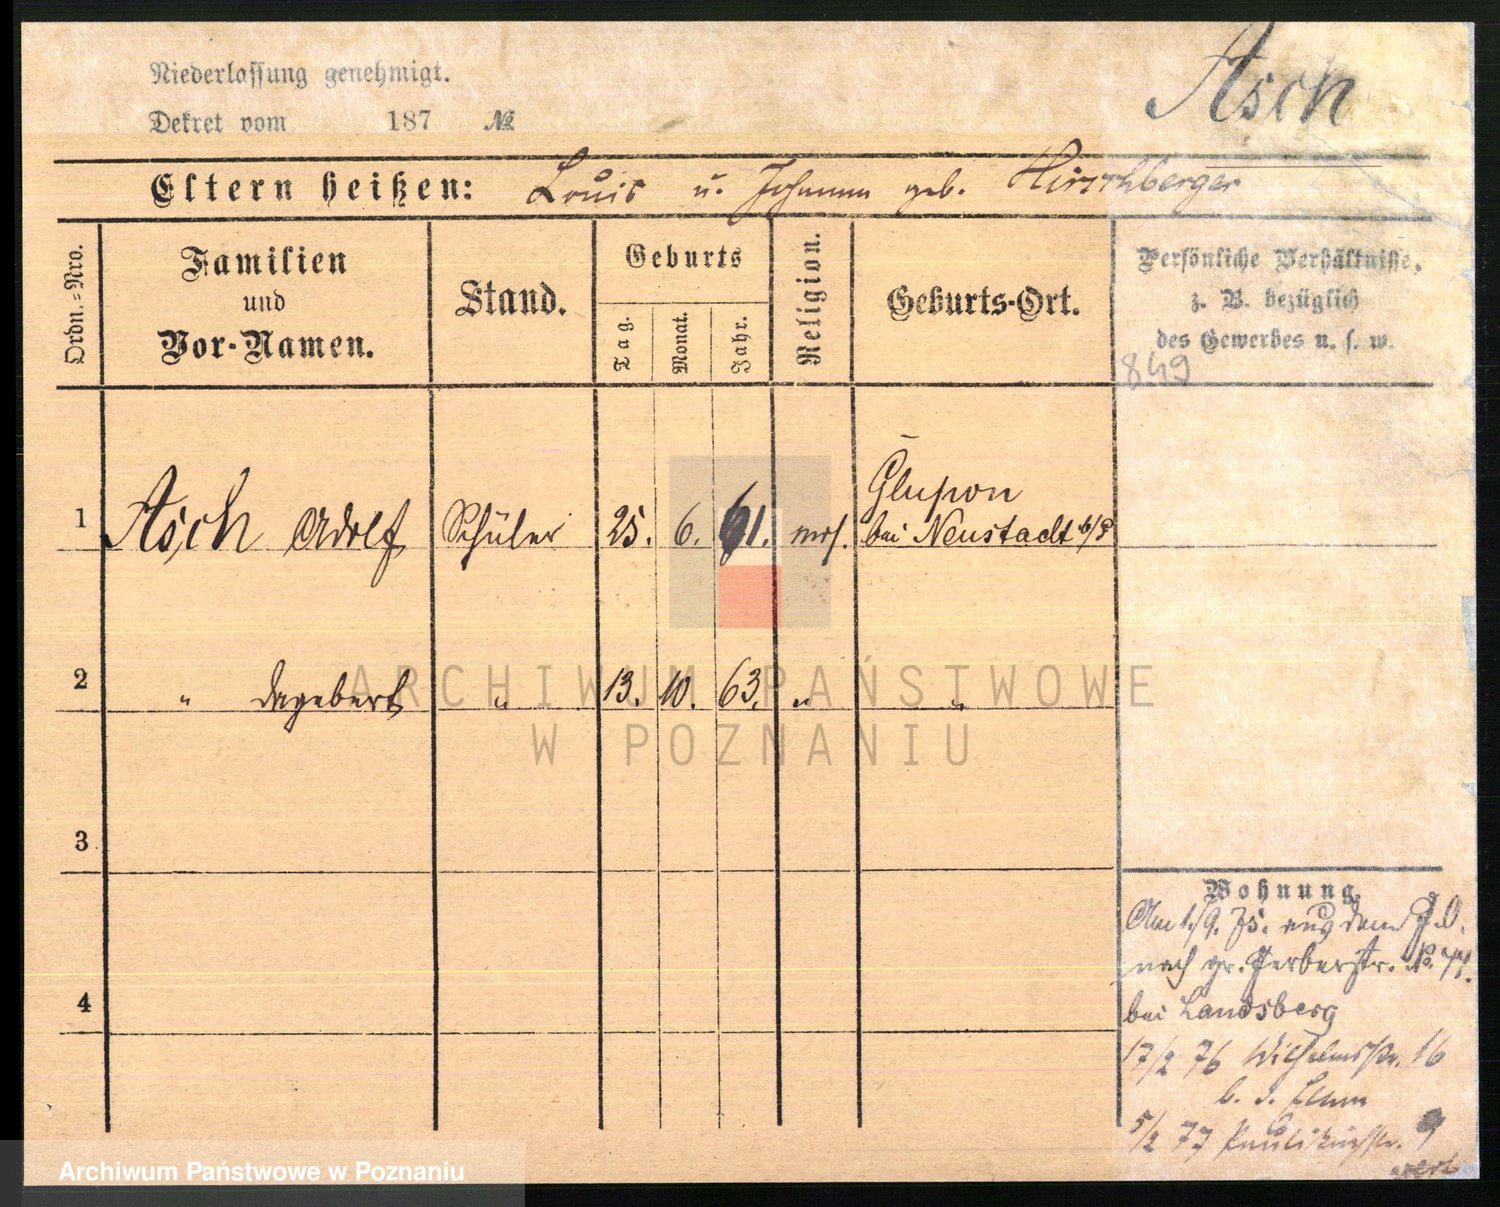 Niederlassung genehmigt.
Dekret vom 187 №
Asch
Eltern heißen: Louis u. Johanna geb. Hirschberger
Ordn.=Nro.
Familien
und
Vor-Namen.
Stand.
Geburts
Tag.
Monat.
Jahr.
Religion.
Geburts-Ort.
Persönliche Verhältnisse,
z. B. bezüglich
des Gewerbes u. s. w.
849
1 Asch Adolf Schüler 25. 6. 61. mos. Glupon
bei Neustadt b/P
2 " Dagobert " 13. 10. 63. " "
3
4
Wohnung.
Am 1./9. 75. aus dem
nach gr. Gerberstr. No.
bei Landsberg
17/2 76 Wilhelmsstr. 16
b. d.
5/2 77 Paulikirchstr. 9
ARCHIWUM PAŃSTWOWE
W POZNANIU
Archiwum Państwowe w Poznaniu